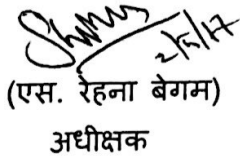 2/5/17
(एस. रेहना बेगम)
अधीक्षक